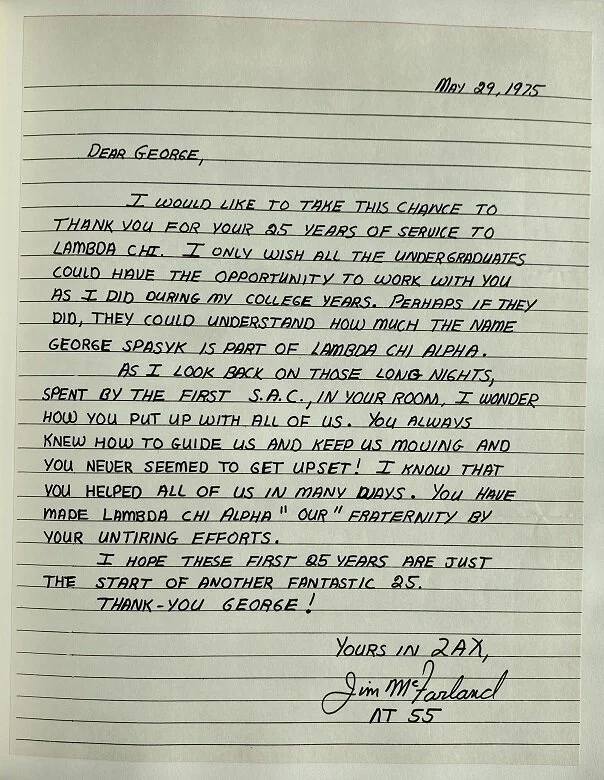 MAY 29, 1975
DEAR GEORGE,
I WOULD LIKE TO TAKE THIS CHANCE TO
THANK YOU FOR YOUR 25 YEARS OF SERVICE TO
LAMBDA CHI. I ONLY WISH ALL THE UNDERGRADUATES
COULD HAVE THE OPPORTUNITY TO WORK WITH YOU
AS I DID DURING MY COLLEGE YEARS. PERHAPS IF THEY
DID, THEY COULD UNDERSTAND HOW MUCH THE NAME
GEORGE SPASYK IS PART OF LAMBDA CHI ALPHA.
AS I LOOK BACK ON THOSE LONG NIGHTS,
SPENT BY THE FIRST S.A.C., IN YOUR ROOM, I WONDER
HOW YOU PUT UP WITH ALL OF US. YOU ALWAYS
KNEW HOW TO GUIDE US AND KEEP US MOVING AND
YOU NEVER SEEMED TO GET UPSET! I KNOW THAT
YOU HELPED ALL OF US IN MANY WAYS. YOU HAVE
MADE LAMBDA CHI ALPHA "OUR" FRATERNITY BY
YOUR UNTIRING EFFORTS.
I HOPE THESE FIRST 25 YEARS ARE JUST
THE START OF ANOTHER FANTASTIC 25.
THANK-YOU GEORGE!
YOURS IN ZAX,
Jim McFarland
ΛT 55